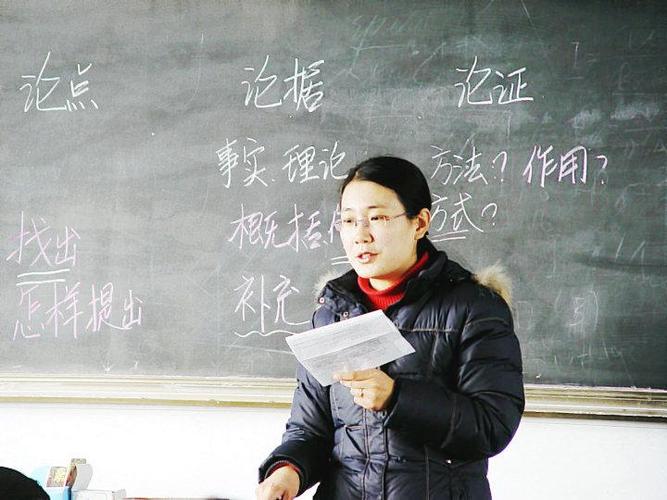 论点 论据 论证
事实、理论 方法？作用？
找出 概括 方式？
怎样提出 补充